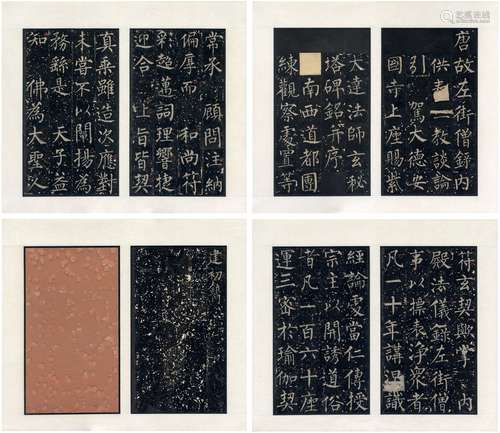 唐故左街僧錄內
供教談論
引 駕大德安
國寺上座賜紫
大達法師玄秘
塔碑銘并序
南西道都團
練觀察處置等
常承 顧問注納
偏厚而和尚符
彩超邁詞理響捷
迎合 上旨皆契
真乘雖造次應對
未嘗不以闡揚為
務繇是 天子益
知 佛為大聖人
符玄契歟掌 內
殿法儀錄左街僧
事以標表淨眾者
凡一十年講涅 識
經論處當仁傳授
宗主以開誘道俗
者凡一百六十座
運三密於瑜伽契
建初